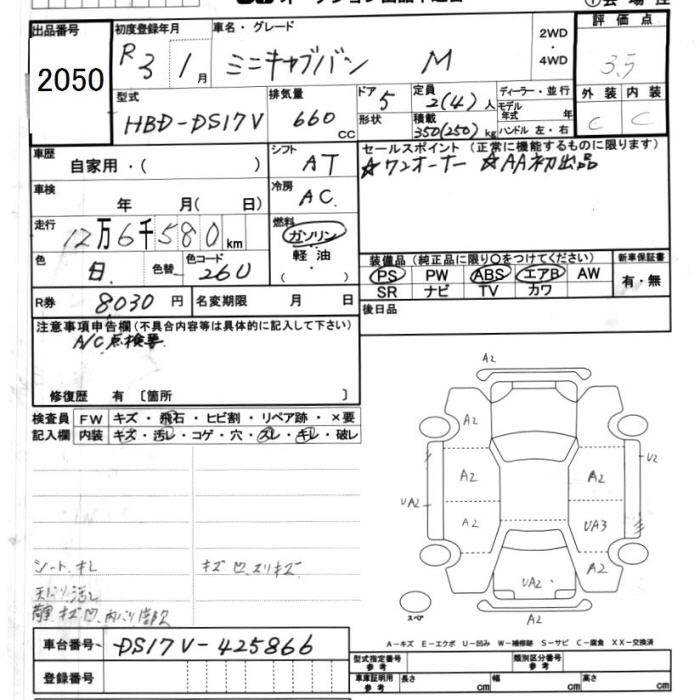 出品番号 2050
初度登録年月 R3 1月
車名・グレード ミニキャブバン M
2WD・4WD
評価点 3.5
外装 C 内装 C
型式 HBD-DS17V
排気量 660 CC
ドア 5
形状
定員 2(4)人
積載 350(250)kg
ディーラー・並行
モデル年式 年
ハンドル 左・右
車歴 自家用・( )
シフト AT
セールスポイント(正常に機能するものに限ります)
☆ワンオーナー ☆AA初出品
車検 年 月( 日)
冷房 AC
走行 12万6千580km
燃料 ガソリン・軽油・( )
色 白 色替 色コード 26U
装備品(純正品に限り○をつけてください)
PS PW ABS エアB AW
SR ナビ TV カワ
新車保証書 有・無
R券 8030円 名変期限 月 日
後日品
注意事項申告欄(不具合内容等は具体的に記入して下さい)
A/C点検要
修復歴 有〔箇所 〕
検査員 FW キズ・飛石・ヒビ割・リペア跡・×要
記入欄 内装 キズ・汚レ・コゲ・穴・スレ・キレ・破レ
A2
A2
A2 A2
U2
UA2
A2 UA3
A2
UA2
A2
スペア
シート、キレ キズ凹、スリキズ
天バリ汚レ
車台番号 DS17V-425866
登録番号
A-キズ E-エクボ U-凹み W-補修跡 S-サビ C-腐食 XX-交換済
型式指定番号 参考 類別区分番号 参考
車庫証明用 参考 長さ cm 幅 cm 高さ cm